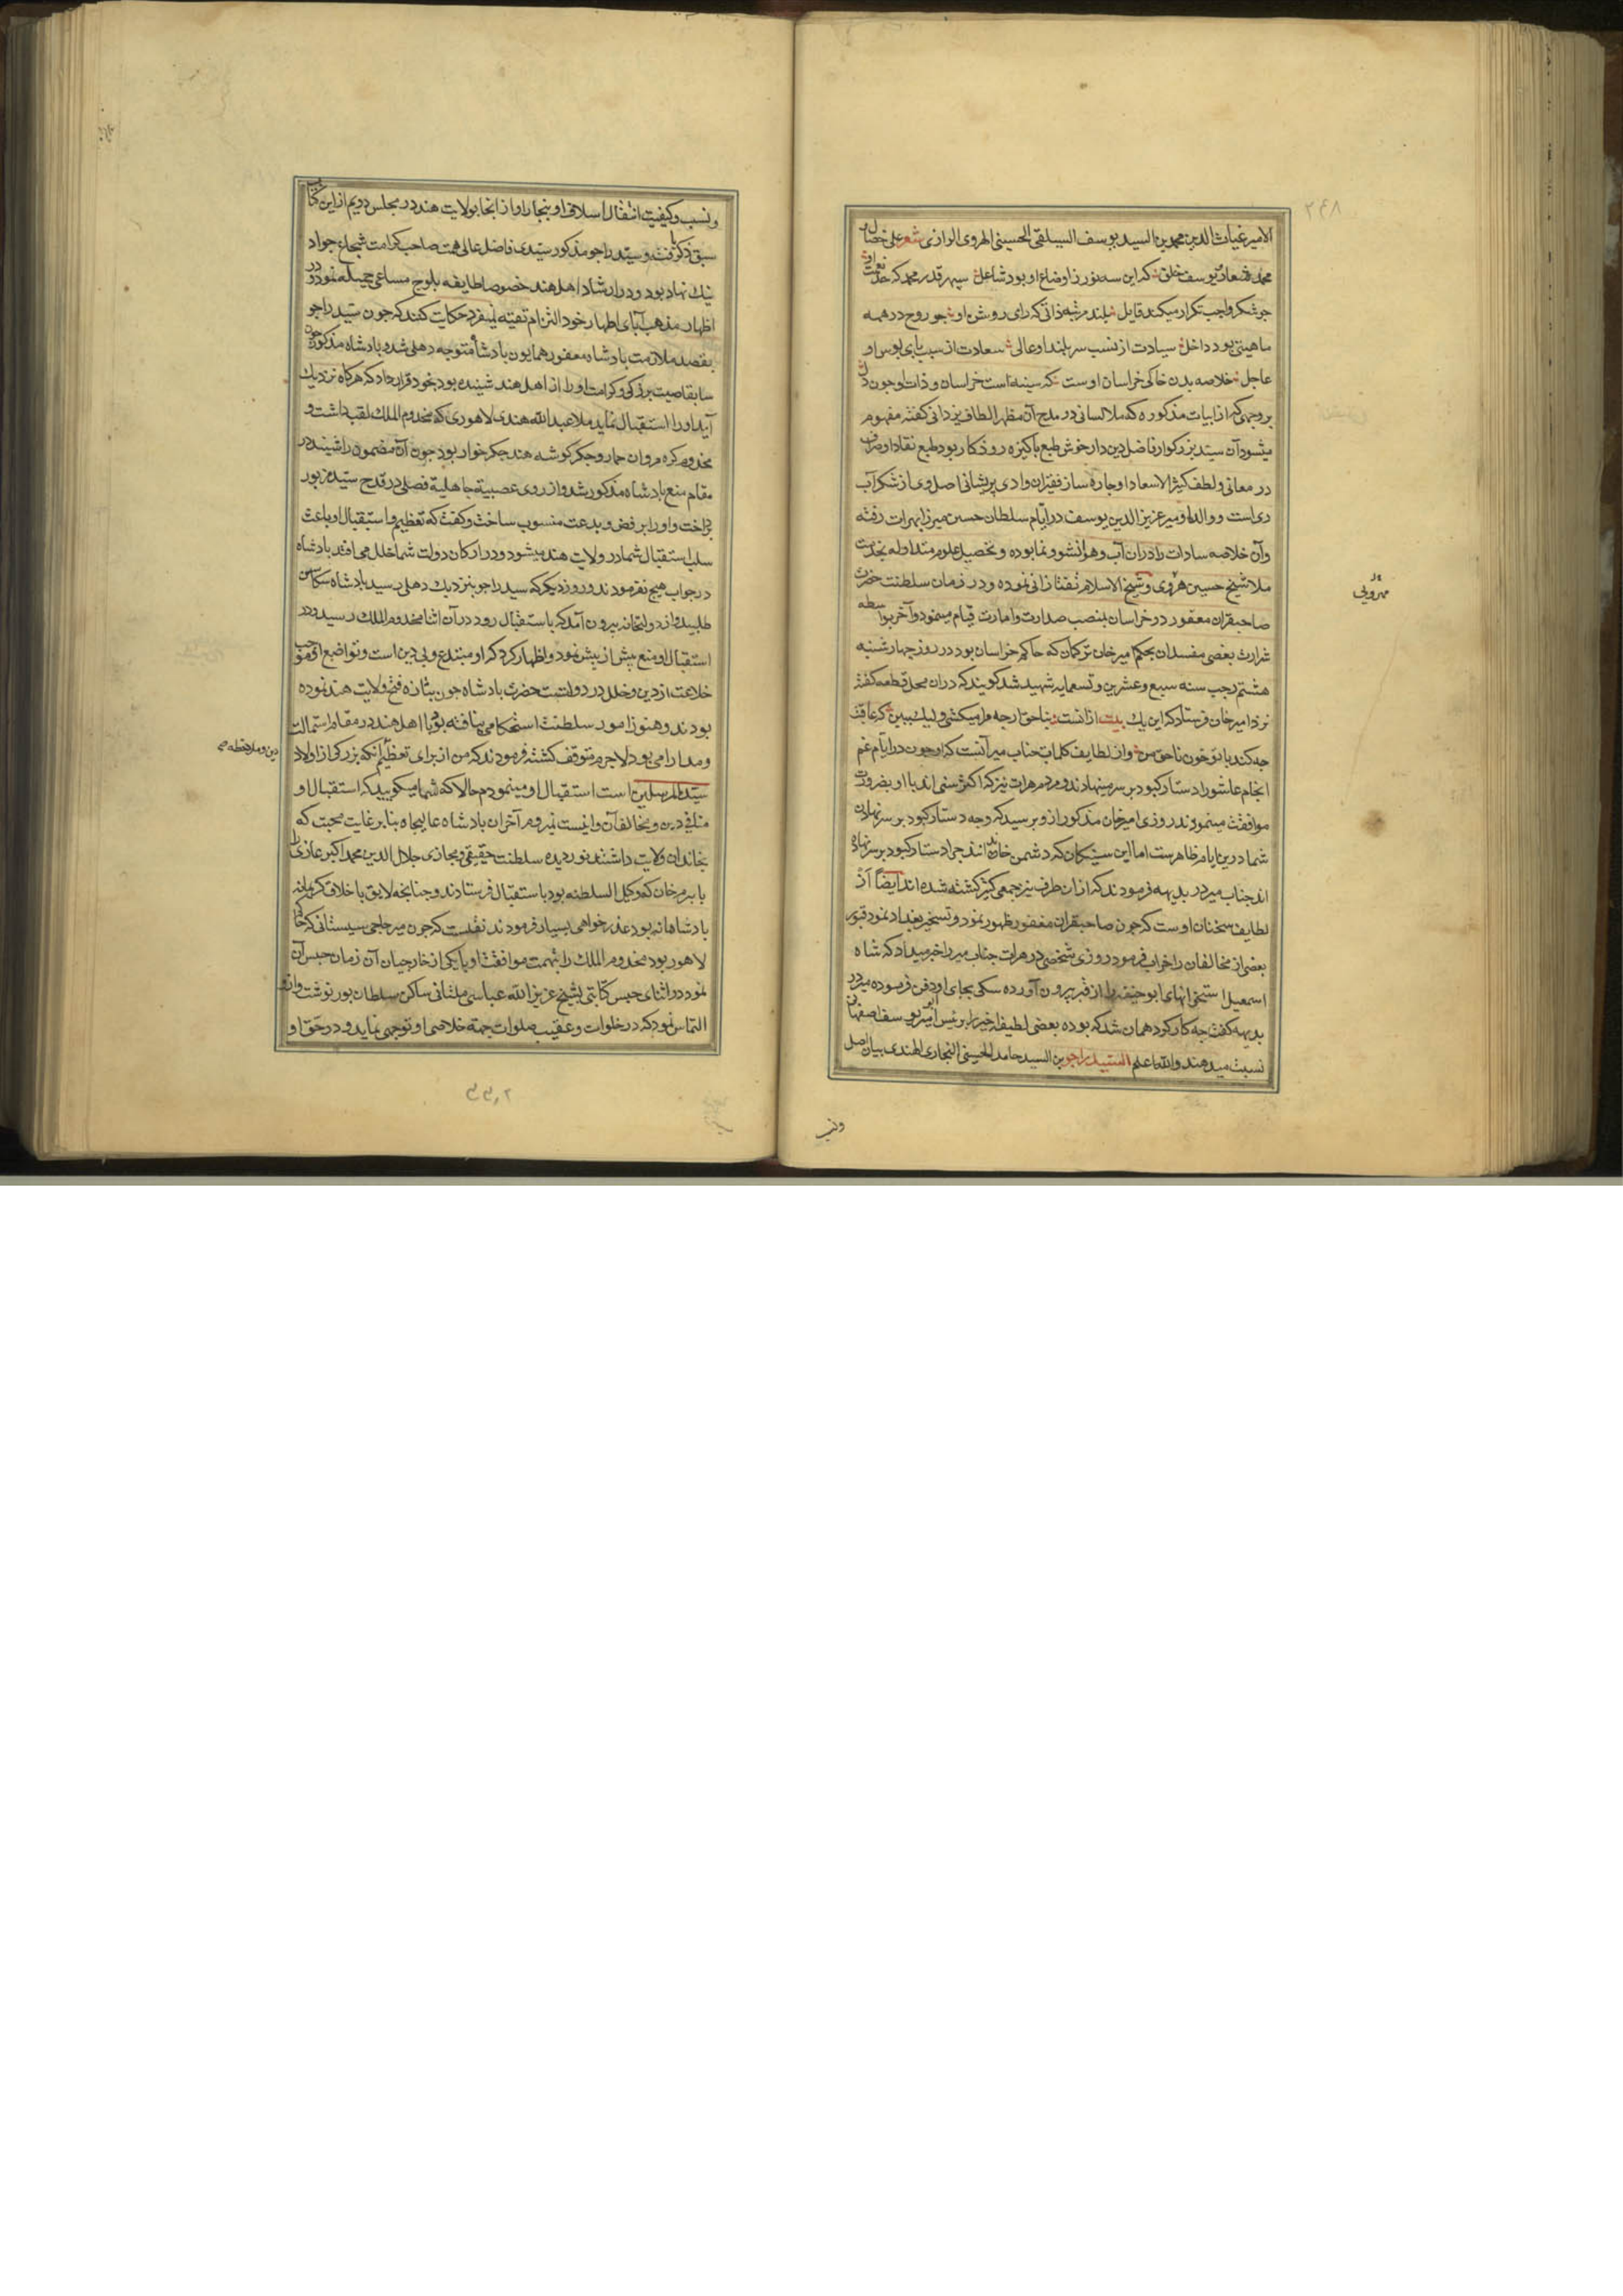 ۲۴۸
الامیر غیاث الدین محمد بن السید یوسف السیلقی الحسینی الهروی الرازی شعر علی خصال
محمد شعار یوسف خلق که این سه نور ز اوضاع او بود شاعل سپهر قدر محمد که خد نعمت او
جو شکر واجب تکرار میکند قایل بلند مرتبه ذاتی که رای روشن او جو روح در همه
ماهیتی بود داخل سیادت از نسب سربلند او عالی سعادت از سبب پای بوس او
عاجل خلاصه بدن خاکی خراسان اوست که سینه است خراسان و ذات او جون دل
بر وجهی که از ابیات مذکوره که ملا لسانی در مدح آن مظهر الطاف یزدانی کفته مفهوم
میشود آن سید بزرکوار فاضل دین دار خوش طبع پاکیزه روزکار بود طبع نقاد او صراف
در معانی و لطف کثیر الاسعاد او جاره ساز فقیران وادی پریشانی اصل وی از شکرآب
ری است و والد او میر عزیز الدین یوسف در ایام سلطان حسین میرزا بهرات رفته
و آن خلاصه سادات را در آن آب و هوا نشو و نما بوده و تحصیل علوم متداوله بخدمت
ملا شیخ حسین هروی و شیخ الاسلام تفتازانی نموده و در زمان سلطنت حضرت
صاحبقران مغفور در خراسان بمنصب صدارت و امارت قیام مینمود و آخر بواسطه
شرارت بعضی مفسدان بحکم امیر خان ترکمان که حاکم خراسان بود در روز چهارشنبه
هشتم رجب سنه سبع و عشرین و تسعمایه شهید شد کویند که در ان محل قطعه کفته
نزد امیر خان فرستاد که این یک بیت از انست بناحق ارجه مرا میکشی ولیک ببین که عاقبت
جه کند با تو خون ناحق من و از لطایف کلمات جناب میر آنست که او جون در ایام غم
انجام عاشورا دستار کبود بر سر مینهادند و مردم هرات نیز که اکثر سنی اند با او بضرورت
موافقت مینمودند روزی امیر خان مذکور از و پرسید که وجه دستار کبود بر سر نهادن
شما درین ایام ظاهرست اما این سنیکان که دشمن خاندان اند جرا دستار کبود بر سر نهاده
اند جناب میر در بدیهه فرمودند که از ان طرف نیز جمعی کثیر کشته شده اند ایضاً از
لطایف سخنان اوست که جون صاحبقران مغفور ظهور نمود و تسخیر بغداد نمود قبور
بعضی از مخالفان را خراب فرمود روزی شخصی در هرات جناب میر را خبر میداد که شاه
اسمعیل استخوانهای ابو حنیفه را از قبر بیرون آورده سکی بجای او دفن فرموده میر در
بدیهه کفت جه کار کرد همان شد که بوده بعضی لطیفه اخیر را بر ئیس امیر یوسف اصفهانی
نسبت میدهند والله اعلم السید راجو بن السید حامد الحسینی البخاری الهندی بیان اصل
ونسب
و نسب و کیفیت انتقال اسلاف او ببخارا و از انجا بولایت هند در مجلس دویم از این کتاب
سبق ذکر یافت و سید راجو مذکور سیدی فاضل عالی همت صاحب کرامت شجاع جواد
نیک نهاد بود و در ارشاد اهل هند خصوصا طایفه بلوج مساعی جمیله نمود و در
اظهار مذهب آبای اطهار خود التزام تقیه نمیفرمود حکایت کنند که جون سید راجو
بقصد ملازمت بادشاه مغفور همایون بادشاه متوجه دهلی شد و بادشاه مذکور جون
سابقا صیت بزرکی و کرامت او را از اهل هند شنیده بود بخود قرار داد که هرکاه نزدیک
آید او را استقبال نماید ملا عبد الله هندی لاهوری که مخدوم الملک لقب داشت و
مخدوم کره مروان حمار و جکر کوشه هند جکرخوار بود جون آن مضمون را شنید در
مقام منع بادشاه مذکور شد و از روی عصبیة جاهلیة فصلی در قدح سید مزبور
پرداخت و او را برفض و بدعت منسوب ساخت و کفت که تعظیم و استقبال او باعث
سلب استقبال شما در ولایت هند میشود و در ارکان دولت شما خلل می افتد بادشاه
در جواب هیج نفرمودند و روز دیکر که سید راجو بنزدیک دهلی رسید بادشاه سکاسن
طلبید و از دولتخانه بیرون آمد که باستقبال رود در آن اثنا مخدوم الملک رسید و در
استقبال او منع بیش از بیش نمود و اظهار کرد که او مبتدع و بی دین است و تواضع او موجب
خلاعت از دین و خلل در دولتست حضرت بادشاه جون بتازه فتح ولایت هند نموده
بودند و هنوز امور سلطنت استحکامی نیافته بود و با اهل هند در مقام استمالت
و مدارا می بود لاجرم متوقف کشته فرمودند که من از برای تعظیم آنکه بزرکی از اولاد
سید المرسلین است استقبال او مینمودم حالا که شما میکویید که استقبال او
منافی دین و مخالف آن و اینست نمیروم آخر ان بادشاه عالیجاه بنا بر غایت محبت که
بخاندان ولایت داشتند نور دیده سلطنت حقیقی و مجازی جلال الدین محمد اکبر غازی را
با بیرم خان که وکیل السلطنه بود باستقبال فرستادند و جنانجه لایق باخلاق کریمانه
بادشاهانه بود عذر خواهی بسیار فرمودند نقلست که جون میر حاجی سیستانی که حاکم
لاهور بود مخدوم الملک را بتهمت موافقت او با یکی از خارجیان آن زمان حبس آن
نمود در اثنای حبس کتابتی بشیخ عزیز الله عباسی ملتانی ساکن سلطان بور نوشت و از و
التماس نمود که در خلوات و عقیب صلوات جهة خلاصی او توجهی نماید و در حق او